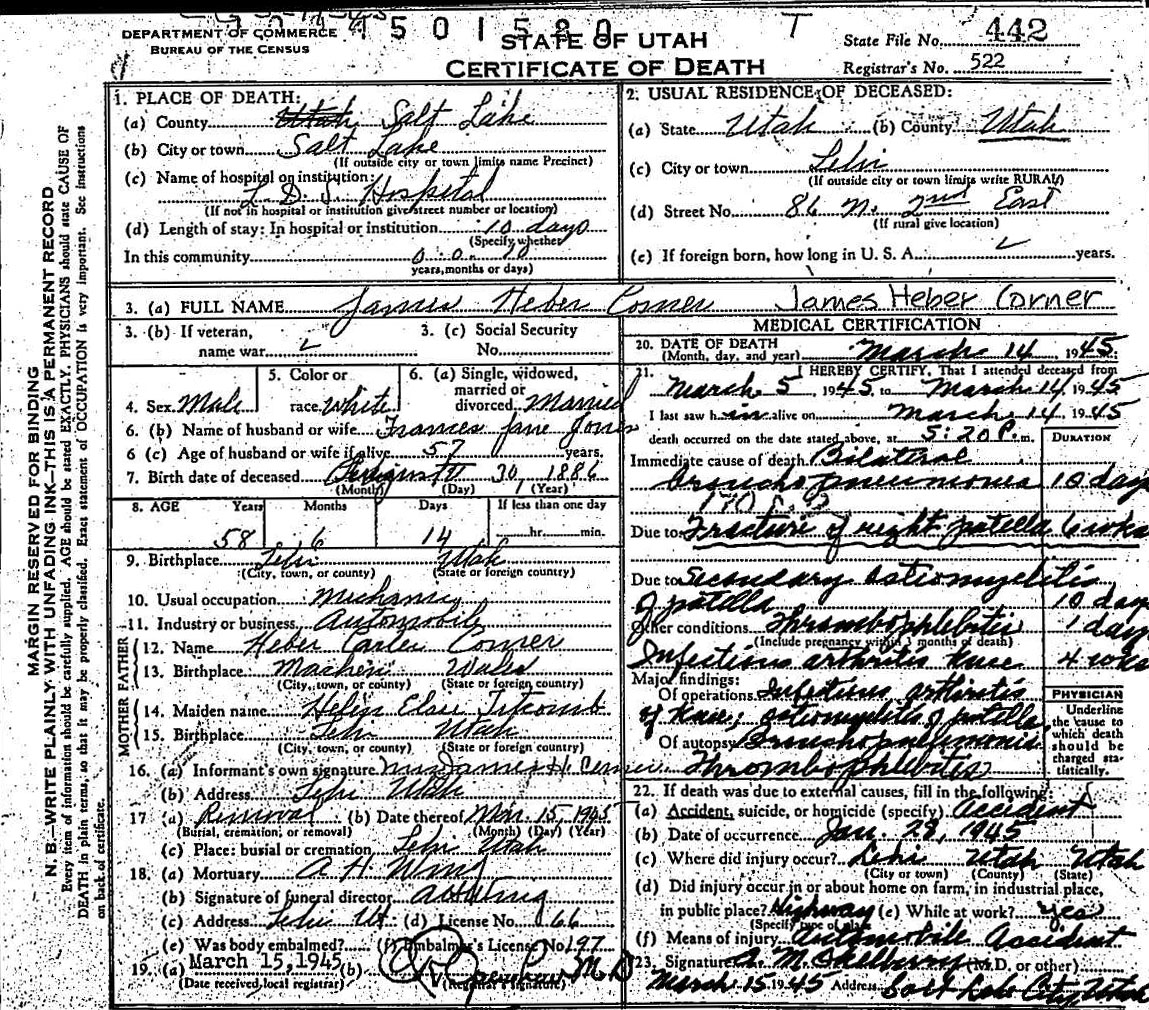 DEPARTMENT OF COMMERCE
BUREAU OF THE CENSUS
501520
T
STATE OF UTAH
CERTIFICATE OF DEATH
State File No. 442
Registrar's No. 522
MARGIN RESERVED FOR BINDING
N. B.—WRITE PLAINLY WITH UNFADING INK—THIS IS A PERMANENT RECORD
Every item of information should be carefully supplied. AGE should be stated EXACTLY. PHYSICIANS should state CAUSE OF
DEATH in plain terms, so that it may be properly classified. Exact statement of OCCUPATION is very important. See instructions
on back of certificate.
1. PLACE OF DEATH:
(a) County Utah Salt Lake
(b) City or town Salt Lake
(If outside city or town limits name Precinct)
(c) Name of hospital or institution:
L. D. S. Hospital
(If not in hospital or institution give street number or location)
(d) Length of stay: In hospital or institution 10 days
(Specify whether
In this community 0-0-10
years, months or days)
2. USUAL RESIDENCE OF DECEASED:
(a) State Utah (b) County Utah
(c) City or town Lehi
(If outside city or town limits write RURAL)
(d) Street No. 86 N. 2nd East
(If rural give location)
(e) If foreign born, how long in U. S. A. years.
3. (a) FULL NAME James Heber Corner James Heber Corner
3. (b) If veteran,
name war
3. (c) Social Security
No.
4. Sex Male
5. Color or
race White
6. (a) Single, widowed,
married or
divorced Married
6. (b) Name of husband or wife Frances Jane Jones
6 (c) Age of husband or wife if alive 57 years.
7. Birth date of deceased 30 1886
(Month) (Day) (Year)
8. AGE Years Months Days If less than one day
58 6 14 hr. min.
9. Birthplace Lehi Utah
(City, town, or county) (State or foreign country)
10. Usual occupation Mechanic
11. Industry or business Automobile
FATHER
12. Name Heber Carlos Corner
13. Birthplace Machen Wales
(City, town, or county) (State or foreign country)
MOTHER
14. Maiden name Titcomb
15. Birthplace Lehi Utah
(City, town, or county) (State or foreign country)
16. (a) Informant's own signature Mrs James H. Corner
(b) Address Lehi Utah
17 (a) Removal (b) Date thereof Mar. 15, 1945
(Burial, cremation, or removal) (Month) (Day) (Year)
(c) Place: burial or cremation Lehi Utah
18. (a) Mortuary A. H. Wing
(b) Signature of funeral director A H Wing
(c) Address Lehi Ut. (d) License No. 66
(e) Was body embalmed? (f) Embalmer's License No. 197
19. (a) March 15, 1945 (b) M D
(Date received local registrar) (Registrar's signature)
MEDICAL CERTIFICATION
20. DATE OF DEATH
(Month, day, and year) March 14, 1945
21. I HEREBY CERTIFY, That I attended deceased from
March 5, 1945, to March 14 1945
I last saw him alive on March 14, 1945
death occurred on the date stated above, at 5:20 P. m.
DURATION
Immediate cause of death Bilateral
Bronchopneumonia 10 days
170
Due to Fracture of right patella 6 wks
Due to Secondary Osteomyelitis
of patella 10 days
Other conditions Thrombophlebitis 1 day
(Include pregnancy within 3 months of death)
Infectious arthritis knee 4 wks
Major findings:
Of operations Infectious arthritis
of knee; osteomyelitis of patella
Of autopsy Bronchopneumonia
Thrombophlebitis
PHYSICIAN
Underline
the cause to
which death
should be
charged sta-
tistically.
22. If death was due to external causes, fill in the following:
(a) Accident, suicide or homicide (specify) Accident
(b) Date of occurrence Jan. 28, 1945
(c) Where did injury occur? Lehi Utah Utah
(City or town) (County) (State)
(d) Did injury occur in or about home on farm, in industrial place,
in public place? Highway (e) While at work? yes
(Specify type of place)
(f) Means of injury Automobile Accident
23. Signature (M.D. or other)
March 15 1945 Address Salt Lake City, Utah